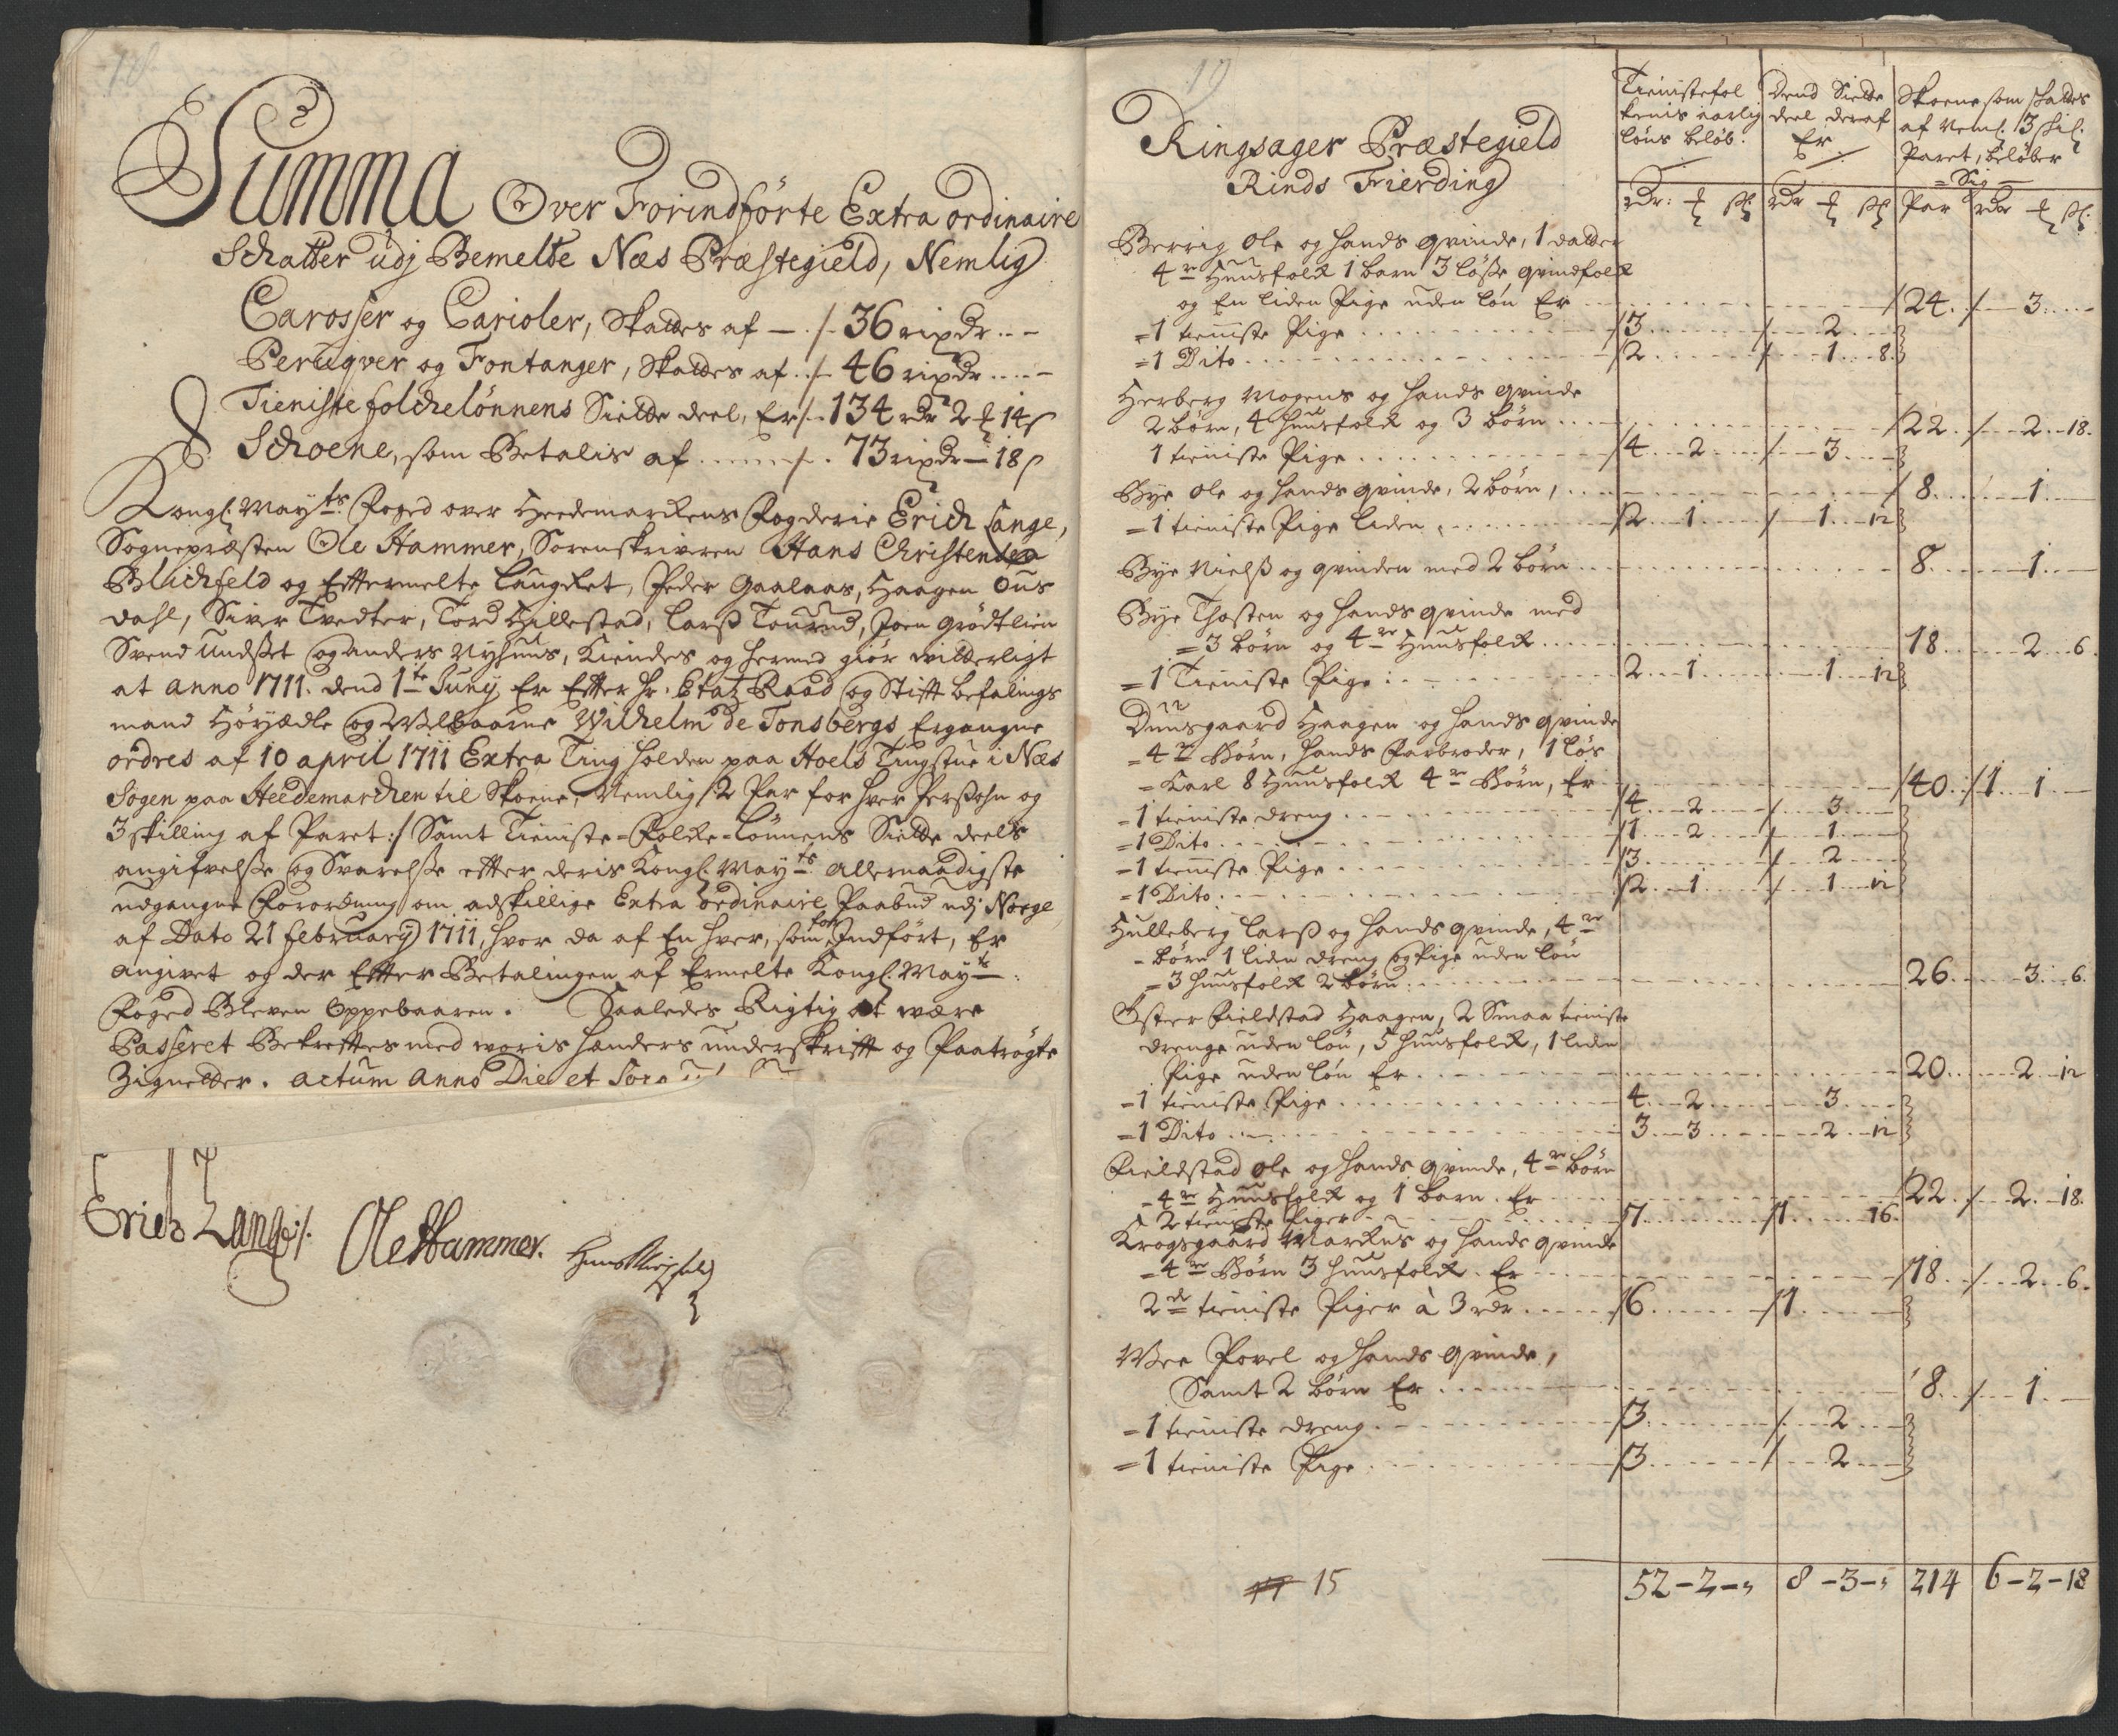 18
Summa Over Forindførte Extra ordinaire
Schatter udj Bemelte Næs Præstegield, Nemlig
Carosser og Carioler, Skattes af — 36 rixdr
Peruqver og Fontanger, Skattes af 46 rixdr
Tieniste folchelønnens Siette deel, Er 134 rdr 2 14 s
Schoene, som Betalis af 73 rixdr — 18 s
Kongl. May.ts Foged over Heedemarckens Fogderie Erich Lange,
Sognepræsten Ole Hammer, Sorenskriveren Hans Christensen
Blichfeld og Eftermelte Laugret, Peder Gaalaas, Haagen Ous
dahl, Siver Tvedter, Tord Hillestad, Larss Tourud, Joen Grødtlien
Svend Undset og Anders Nyhuus, Kiendes og hermed giør witterligt
at anno 1711. dend 1te Junÿ Er Efter Hr. Etatz Raad og Stift befalings
mand Høÿædle og Velbaarne Wilhelm de Tonsbergs Ergangne
ordres af 10 april 1711 Extra Ting holden paa Hoels Tingstue i Næs
Sogen paa Heedemarchen til Skoene, Nemlig 2 Par for hver Perssohn og
3 skilling af Paret :/ Samt Tieniste-Folke-Lønnens Siette deels
angifvelsse og Svarelsse efter deris Kongl. May.ts allernaadigste
udgangne Forordning om adskillige Extra ordinaire Paabud udj Norge
af Dato 21 february 1711, hvor da af En hver, som for Indført, Er
angivet og der Efter Betalingen af Ermelte Kongl. May.ts
Foged Bleven Oppebaaren. Saaledes Rigtig at være
Passeret Bekreftes med woris hænders underskrift og Paatrøgte
Zignetter. actum Anno Die et
Erich Lange
Ole Hammer.
19
Ringsager Præstegield
Rinds Fierding
Tienistefol
kenis aarlig
løns beløb.
Dend Siette
deel deraf
Er
Skoene som skattes
af Neml. 3 skil.
Paret, beløber
Sig
rdr rdr Par rdr
Berrig Ole og hands qvinde, 1 datter
4re Huusfolk 1 barn 3 løsse qvindfolk
og En liden Pige uden løn Er 24 3
=1 tieniste Pige 3 2
=1 Dito 2 1 8
Herberg Mogens og hands qvinde
2 børn, 4 huusfolk og 3 børn 22 2 18
1 tieniste Pige 4 2 3
Bye Ole og hands qvinde, 2 børn, 8 1
=1 tieniste Pige liden 2 1 1 12
Bye Nielss og qvinden med 2 børn 8 1
Bye Thosten og hands qvinde med
=3 børn og 4re Huusfolk 18 2 6
=1 Tieniste Pige 2 1 1 12
Duusgaard Haagen og hands qvinde
=4re Børn, hands Farbroder, 1 løs
=Karl 8 Huusfolk 4re Børn, Er 40 1 1
=1 tieniste dreng 4 2 3
=1 Dito 1 2 1
=1 tieniste Pige 3 2
=1 Dito 2 1 1 12
Hulleberg Larss og hands qvinde, 4re
-børn 1 liden dreng og Pige uden løn
=3 huusfolk 2 børn 26 3 6
Øster Fieldstad Haagen, 2 Smaa tieniste
drenge uden løn, 5 huusfolk, 1 liden
Pige uden løn Er 20 2 12
=1 tieniste Pige 4 2 3
=1 Dito 3 3 2 12
Fieldstad Ole og hands qvinde, 4re børn
=4re Huusfolk og 1 barn. Er 22 2 18
2 tieniste Piger 7 1 16
Krogsgaard Marckus og hands qvinde
=4re Børn 3 huusfolk. Er 18 2 6
2de tieniste Piger à 3 rdr 6 1
Wee Povel og hands qvinde,
Samt 2 børn Er 8 1
=1 tieniste dreng 3 2
=1 tieniste Pige 3 2
15
52 - 2 - 8 - 3 - 214 6 - 2 - 18